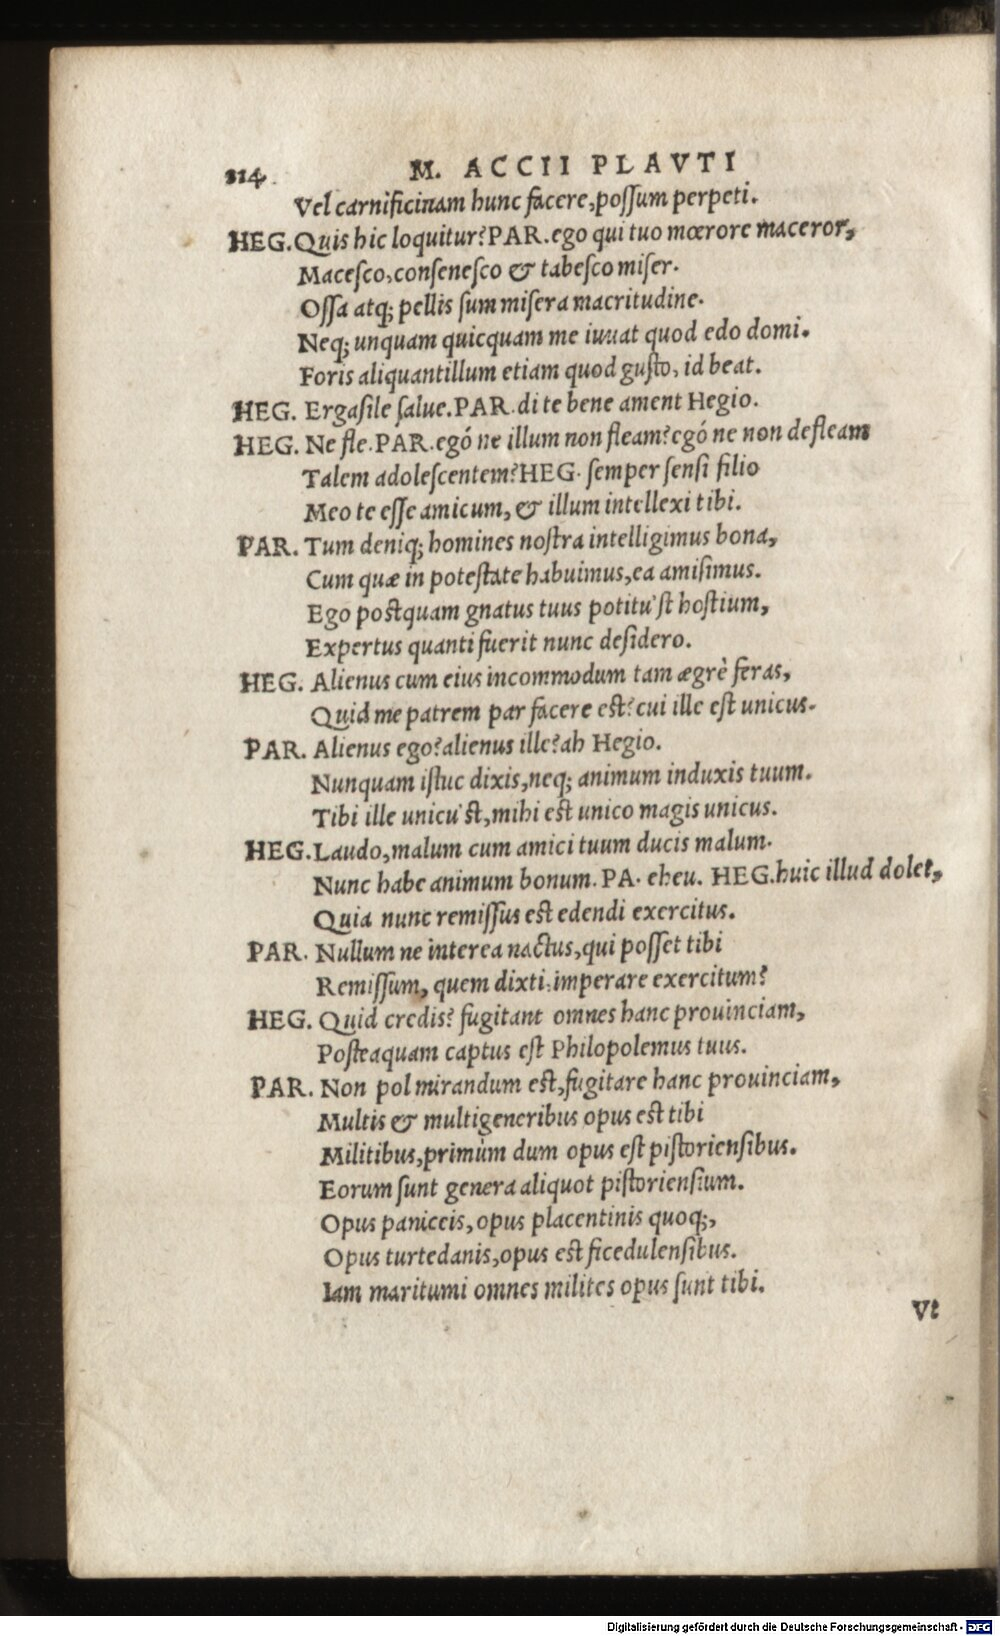 114 M. ACCII PLAVTI
Vel carnificinam hunc facere, poſſum perpeti.
HEG. Quis hic loquitur? PAR. ego qui tuo mœrore maceror,
Maceſco, conſeneſco & tabeſco miſer.
Oſſa atq; pellis ſum miſera macritudine.
Neq; unquam quicquam me iuuat quod edo domi.
Foris aliquantillum etiam quod guſto, id beat.
HEG. Ergaſile ſalue. PAR. di te bene ament Hegio.
HEG. Ne fle. PAR. egó ne illum non fleam? egó ne non defleam
Talem adoleſcentem? HEG. ſemper ſenſi filio
Meo te eſſe amicum, & illum intellexi tibi.
PAR. Tum deniq; homines noſtra intelligimus bona,
Cum quæ in poteſtate habuimus, ea amiſimus.
Ego poſtquam gnatus tuus potitu'ſt hoſtium,
Expertus quanti fuerit nunc deſidero.
HEG. Alienus cum eius incommodum tam ægrè feras,
Quid me patrem par facere eſt? cui ille eſt unicus.
PAR. Alienus ego? alienus ille? ah Hegio.
Nunquam iſtuc dixis, neq; animum induxis tuum.
Tibi ille unicu'ſt, mihi eſt unico magis unicus.
HEG. Laudo, malum cum amici tuum ducis malum.
Nunc habe animum bonum. PA. eheu. HEG. huic illud dolet,
Quia nunc remiſſus eſt edendi exercitus.
PAR. Nullum ne interea nactus, qui poſſet tibi
Remiſſum, quem dixti, imperare exercitum?
HEG. Quid credis? fugitant omnes hanc prouinciam,
Poſteaquam captus eſt Philopolemus tuus.
PAR. Non pol mirandum eſt, fugitare hanc prouinciam,
Multis & multigeneribus opus eſt tibi
Militibus, primùm dum opus eſt piſtorienſibus.
Eorum ſunt genera aliquot piſtorienſium.
Opus paniceis, opus placentinis quoq;,
Opus turtedanis, opus eſt ficedulenſibus.
Iam maritumi omnes milites opus ſunt tibi.
Vt
Digitalisierung gefördert durch die Deutsche Forschungsgemeinschaft - DFG